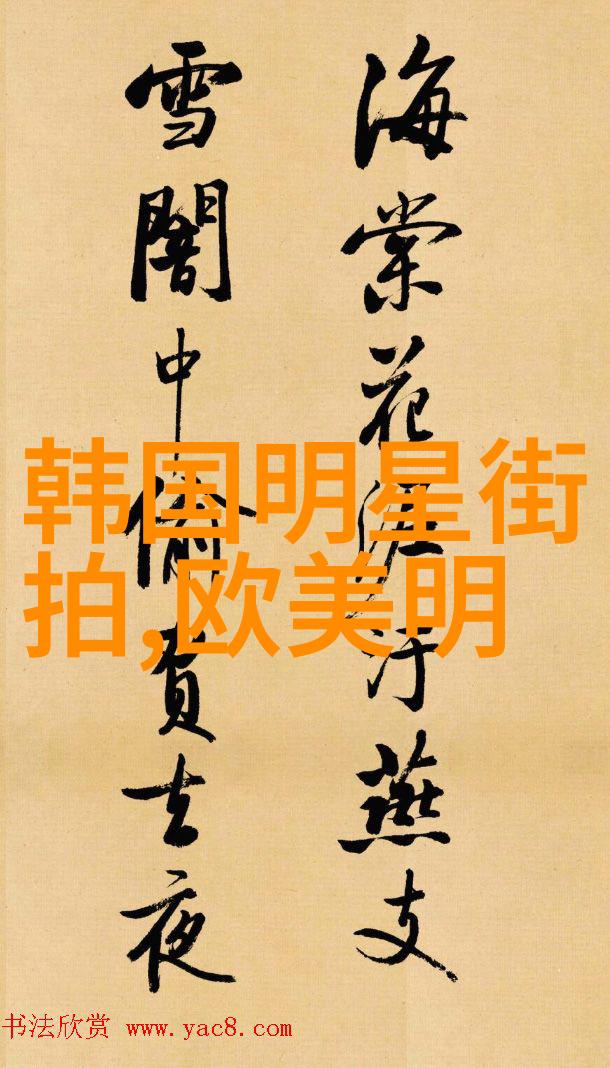 海棠花泥汙燕支
雪闇中偷負去夜
韩国明星街
拍,欧美明
书法欣赏 www.yac8.com